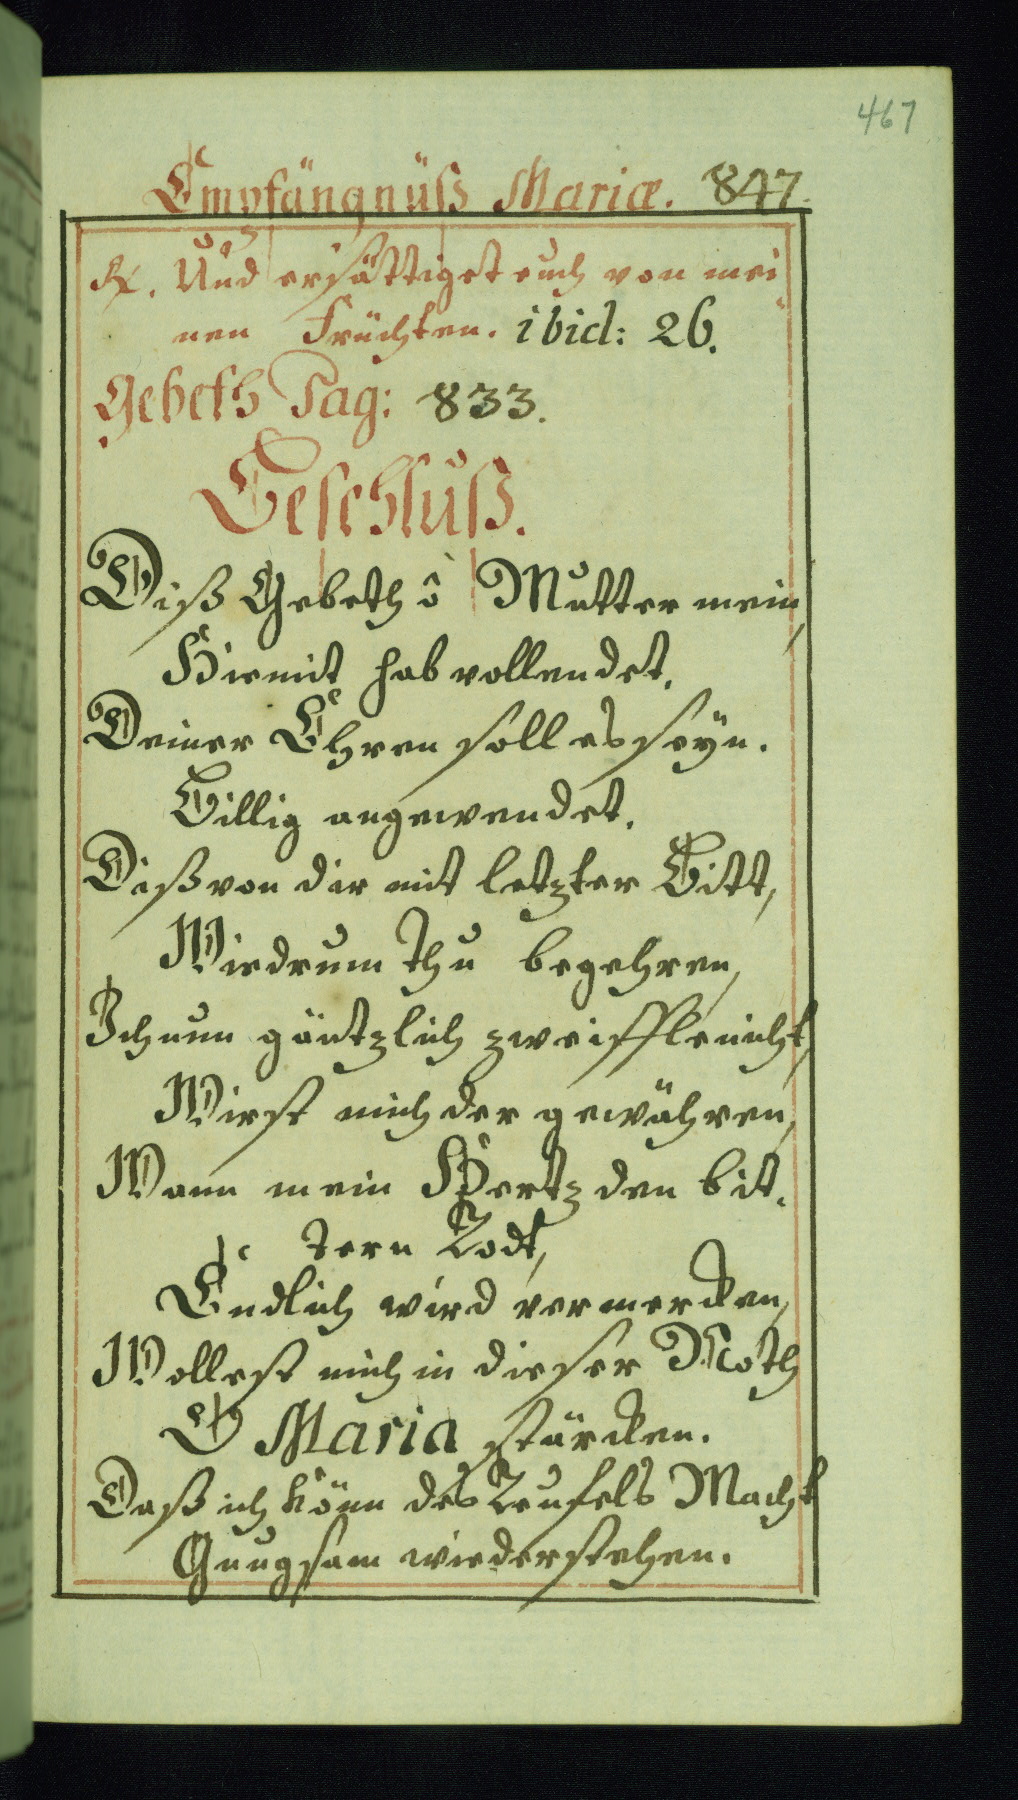 467
Empfängnüß Mariæ. 847.
℟. Und ersättiget euch von mei
nen Früchten. ibid: 26.
Gebeth Pag: 833.
Beschluß.
Diß Gebeth ô Mutter mein,
Hiemit hab vollendet.
Deiner Ehren soll es seÿn.
Billig angewendet.
Diß von dir mit letzter Bitt,
Wiedrum thu begehren,
Ich nun gäntzlich zweiffle nicht,
Wirst mich der gewähren,
Wann mein Hertz den bit-
tern Todt,
Endlich wird vermercken,
Wollest mich in dieser Noth
O Maria stärcken.
Daß ich könn des Teufels Macht
Gnugsam wiederstehen.